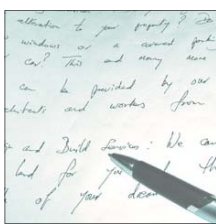 alteration to your property? Do
windows or a covered
car? This and many more
can be provided by our
architects and works from
and Build Services: We can
land for you
of your dream